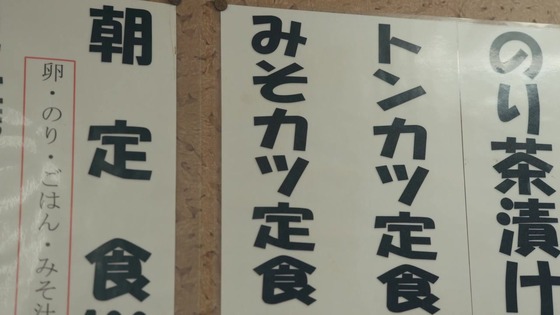 のり茶漬け
トンカツ定食
みそカツ定食
朝定食
卵・のり・ごはん・みそ汁